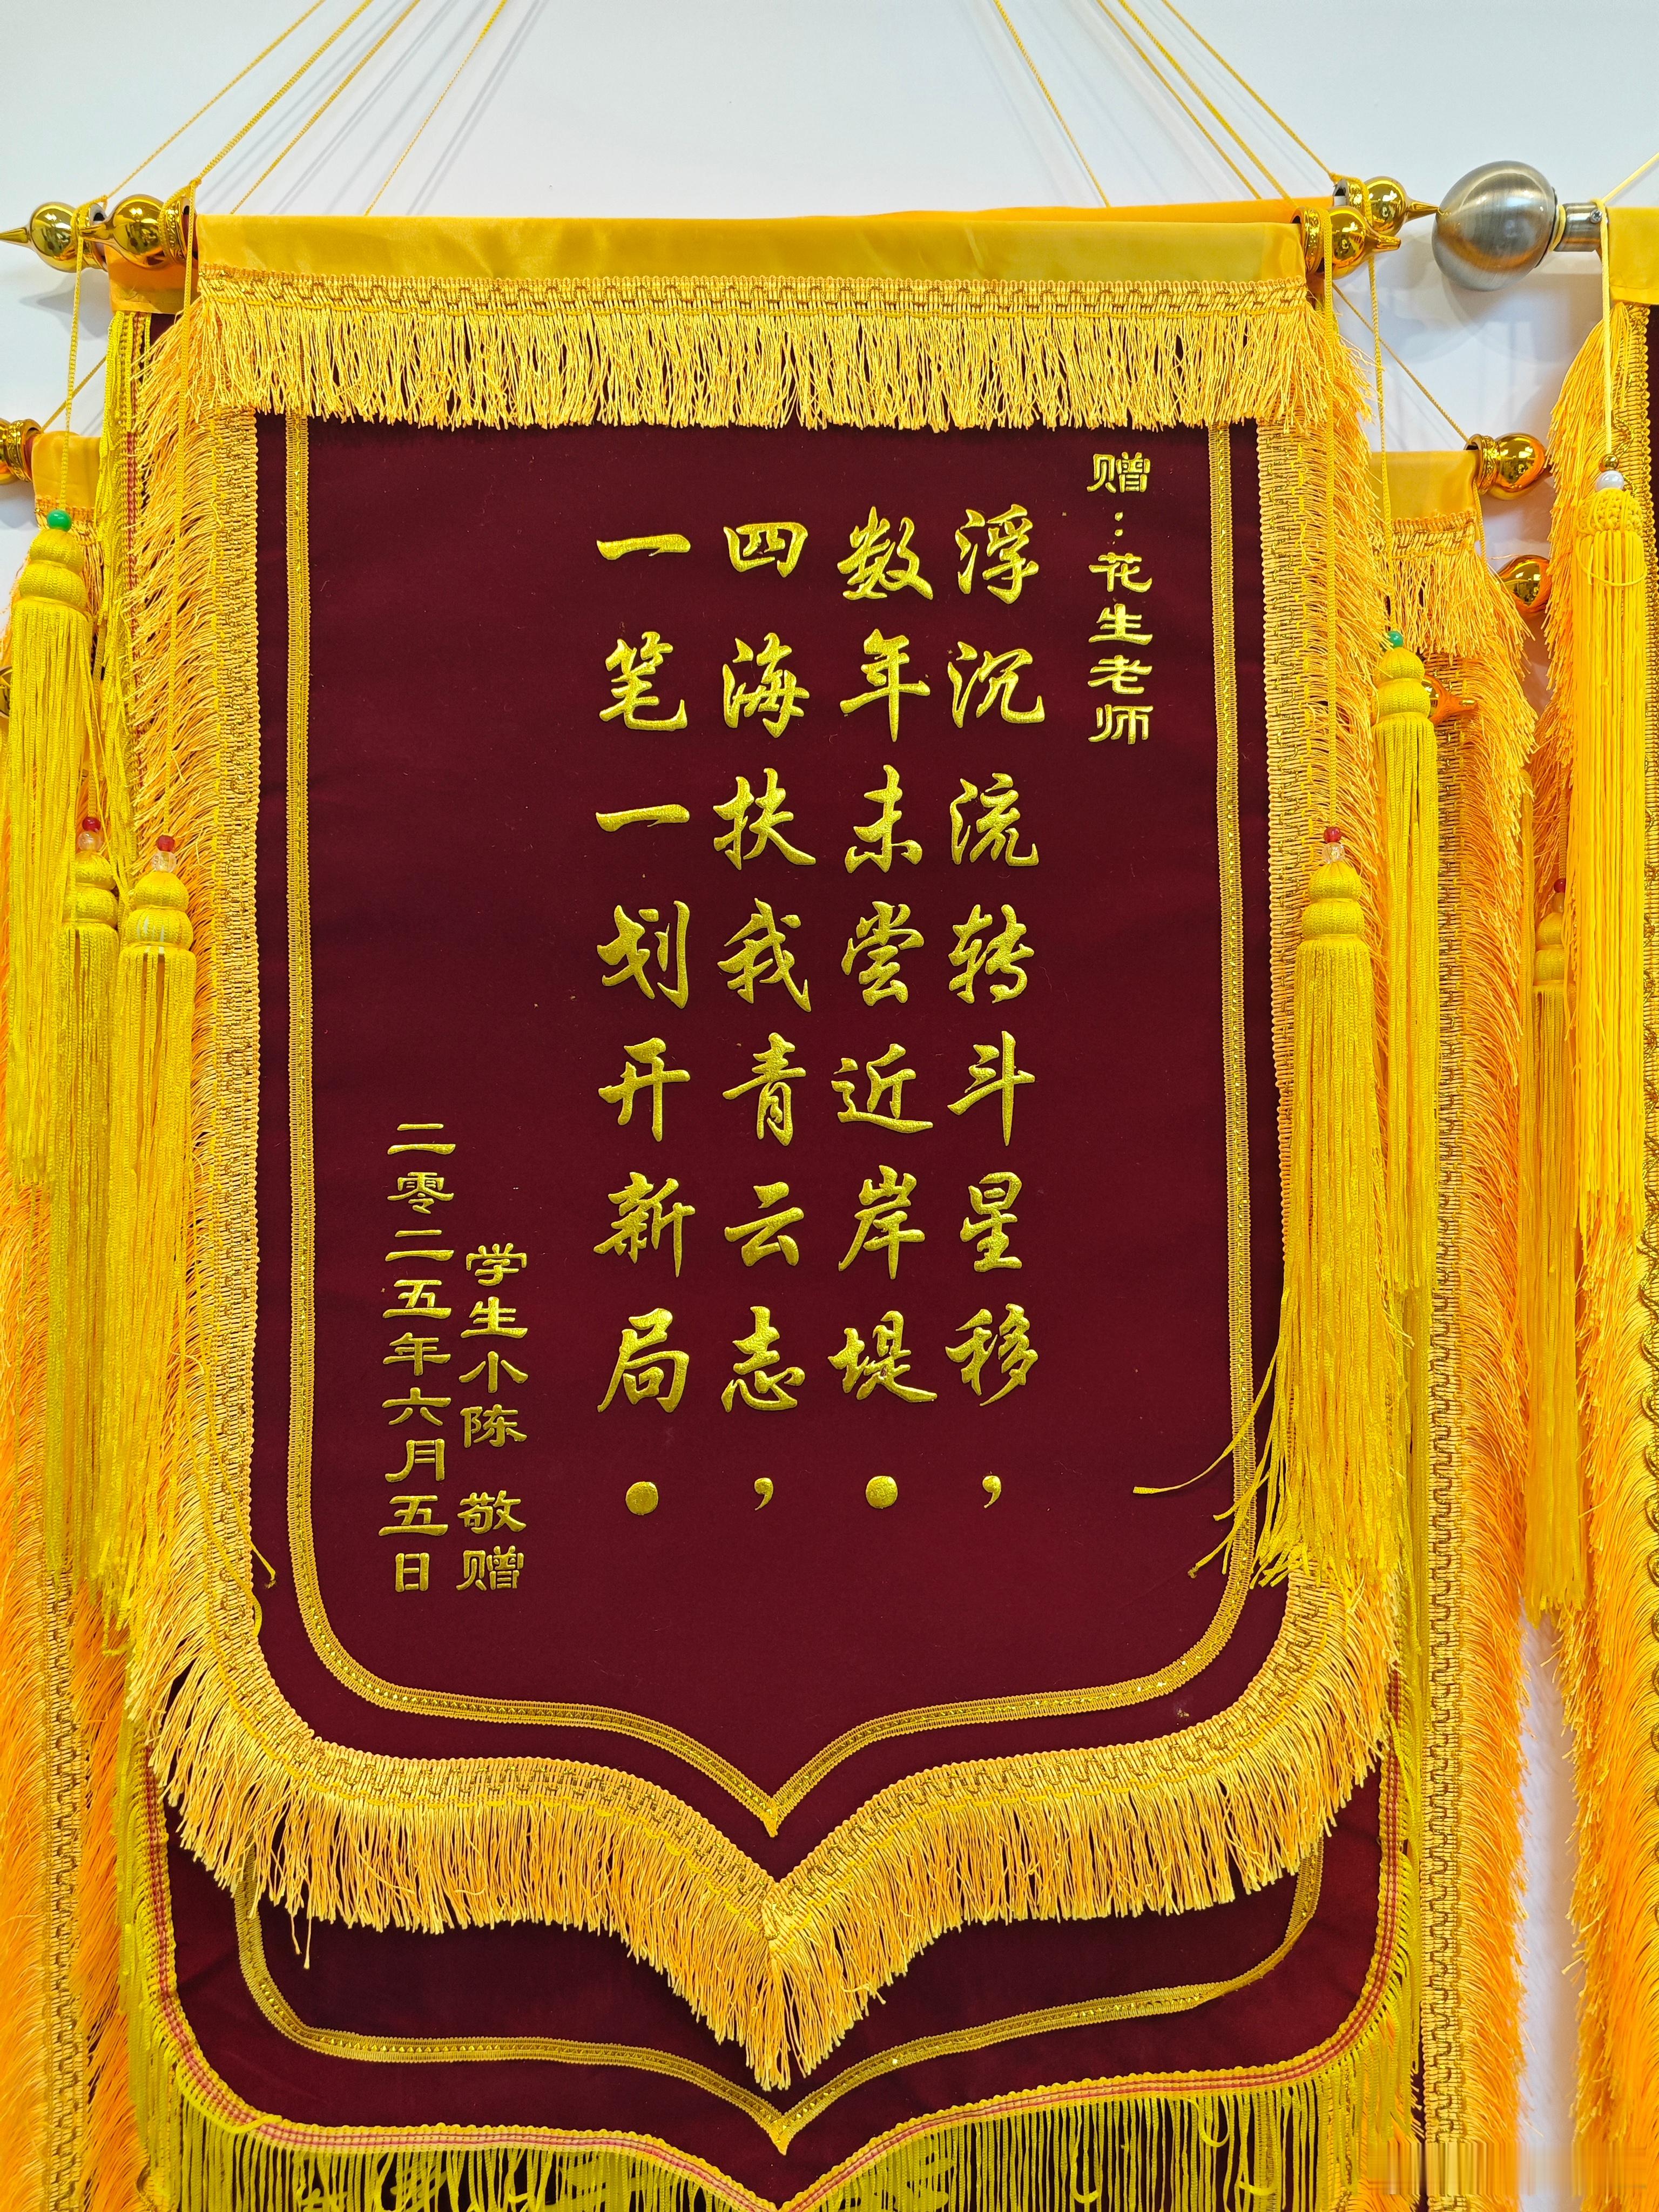 赠：花生老师
浮沉流转斗星移，
数年未尝近岸堤。
四海扶我青云志，
一笔一划开新局。
学生小陈 敬赠
二零二五年六月五日